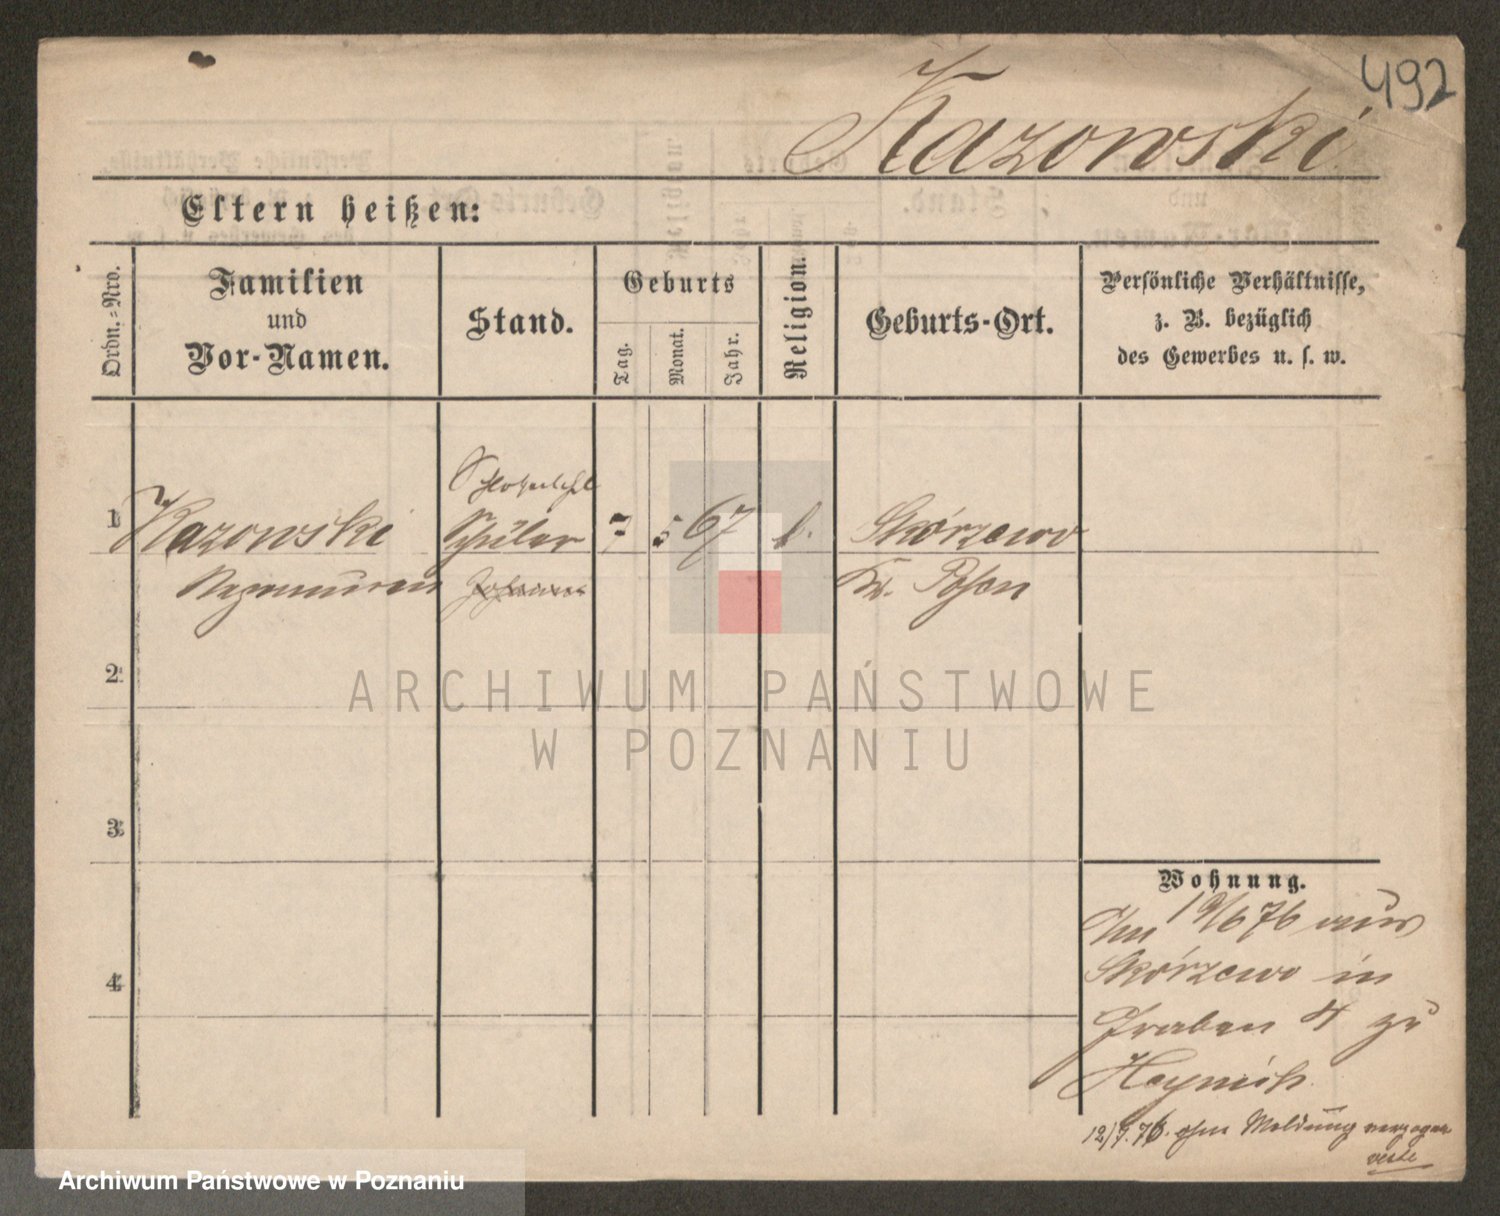 492
Kazowski
Eltern heißen:
Ordn.-Nro.
Familien
und
Vor-Namen.
Stand.
Geburts
Tag.
Monat.
Jahr.
Religion.
Geburts-Ort.
Persönliche Verhältnisse,
z. B. bezüglich
des Gewerbes u. s. w.
1 Kazowski Schüler 7 5 67 k. Skórzewo
Kr. Posen
2
3
4
Wohnung.
Am 19/6 76 aus
Skórzewo in
Graben 4 zu
12/9. 76. ohne Meldung verzogen
ARCHIWUM PAŃSTWOWE
W POZNANIU
Archiwum Państwowe w Poznaniu